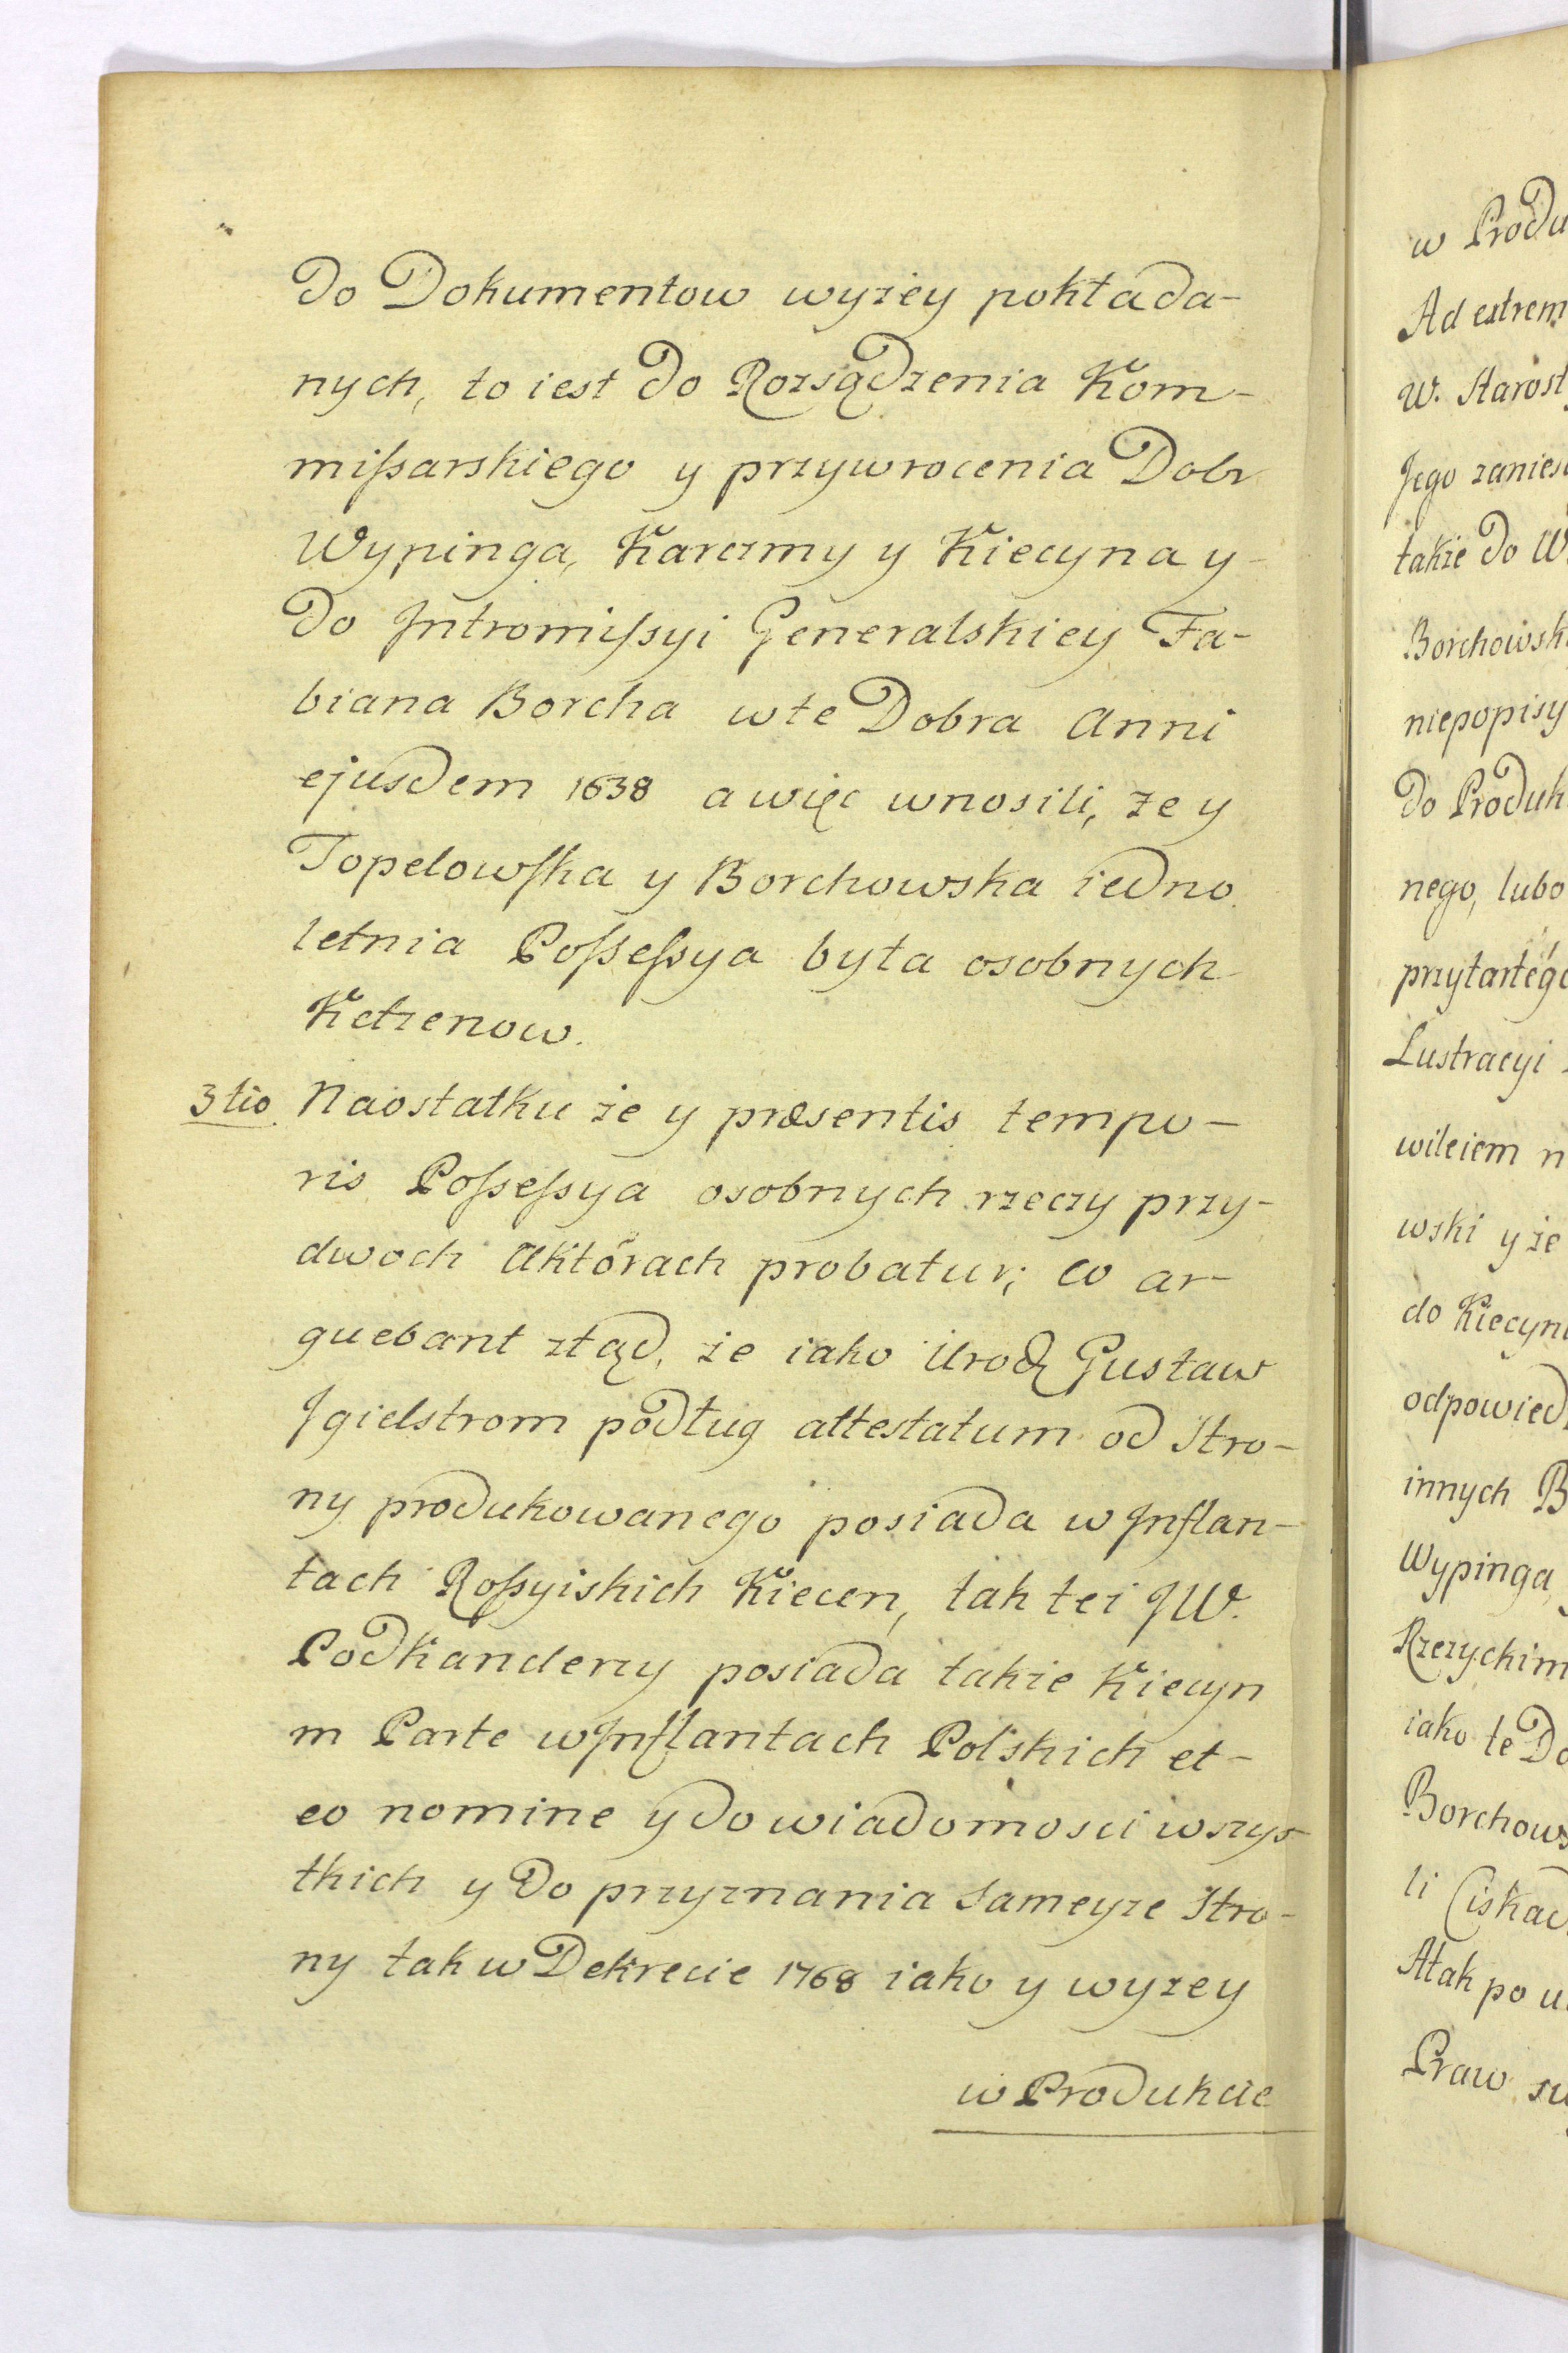 do Dokumentow wyżey pokłada-
nych, to iest do Rozsądzenia Kom-
mißarskiego y przywrocenia Dobr
Wypinga, Karczmy y Kiecyna y-
do Intromißyi Generalskiey Fa-
biana Borcha wte Dobra Anni
ejusdem 1638 a więc wnosili, że y
Topelowska y Borchowska iedno
letnia Poßeßya była osobnych
Ketzenow.
3tio Naostatku że y præsentis tempo-
ris Poßeßya osobnych rzeczy przy-
dwoch Aktórach probatur; co ar-
guebant ztąd, że iako Urodz Gustaw
Igielstrom podług attestatum od Stro-
ny produkowanego posiada w Inflan-
tach Roßyiskich Kiecen, tak też JW.
Podkanclerzy posiada takze Kiecyn
in Parte w Inflantach Polskich et-
eo nomine y do wiadomosci wszys-
tkich y do przyznania Sameyże Stro-
ny tak w Dekrecie 1768 iako y wyżey
w Produkcie
w Produ
Ad extrem
W. Starost
Jego zanies
takze do W
Borchowsk
niepopisy
do Produk
nego, lubo
przytartego
Lustracyi
wileiem n
wski y że
do Kiecyn
odpowied
innych B
Wypinga,
Rzezyckim
iako te Do
Borchows
li Ciskad
Atak po u
Praw sw